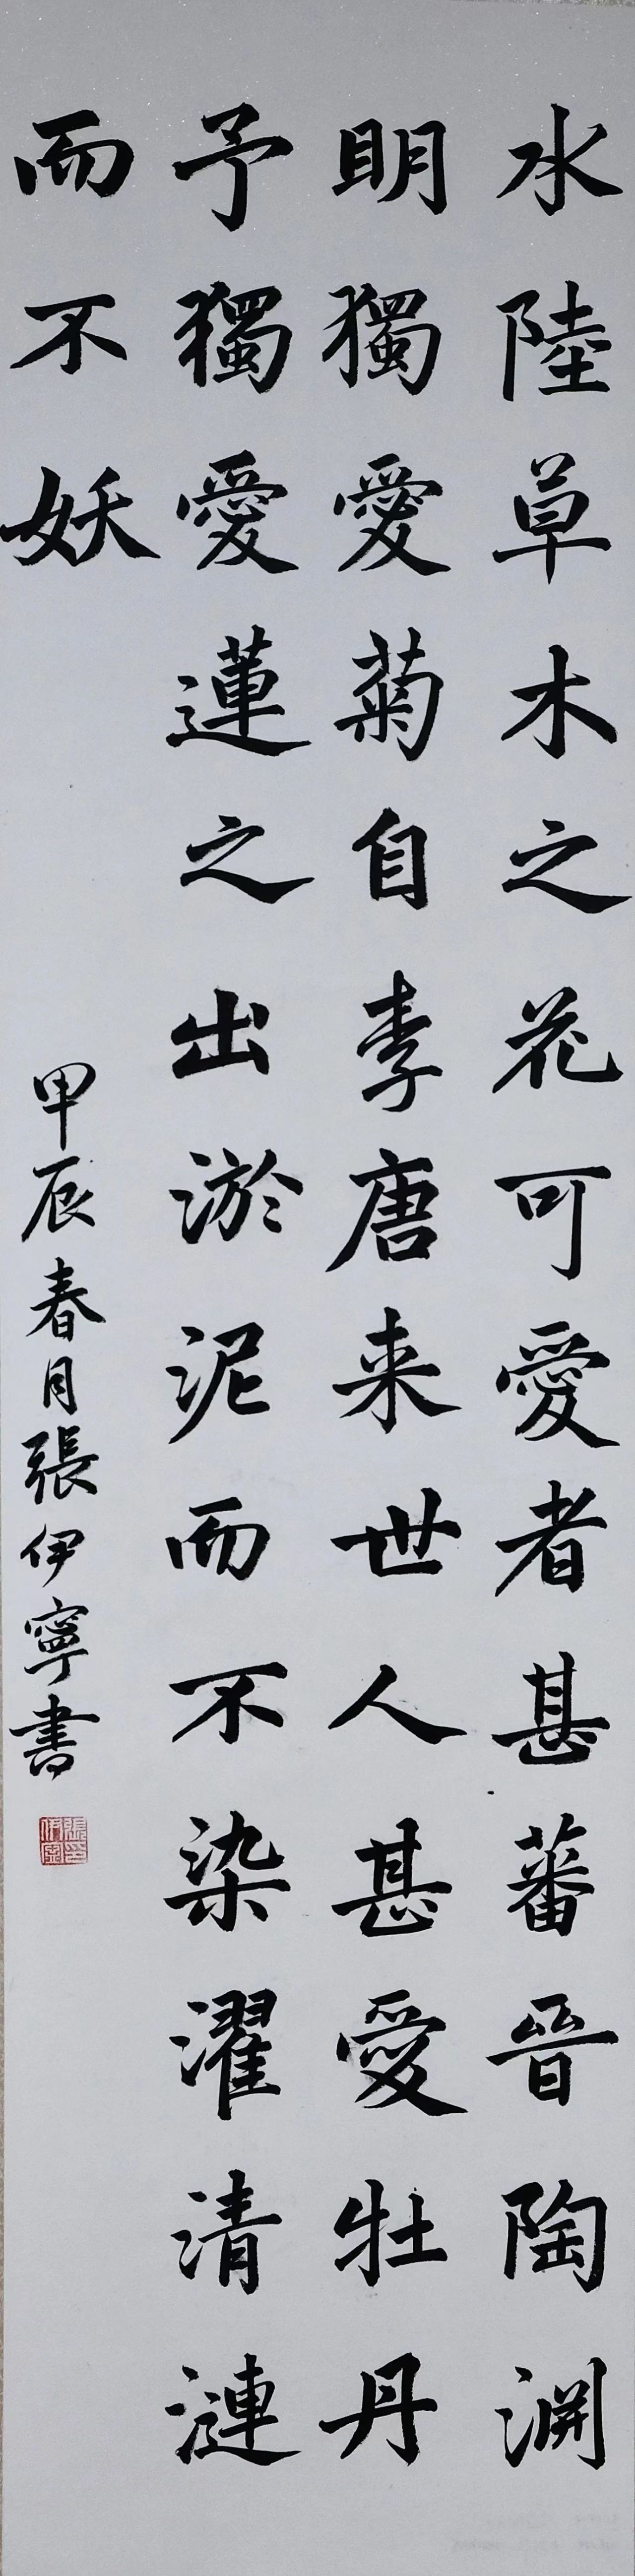 水陸草木之花可愛者甚蕃晉陶渊
明獨愛菊自李唐来世人甚愛牡丹
予獨愛蓮之出淤泥而不染濯清漣
而不妖
甲辰春月張伊寧書
張伊寧印